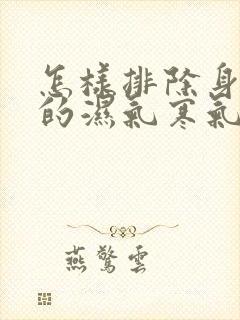 怎樣排除身
的濕氣寒氣
燕驚雲